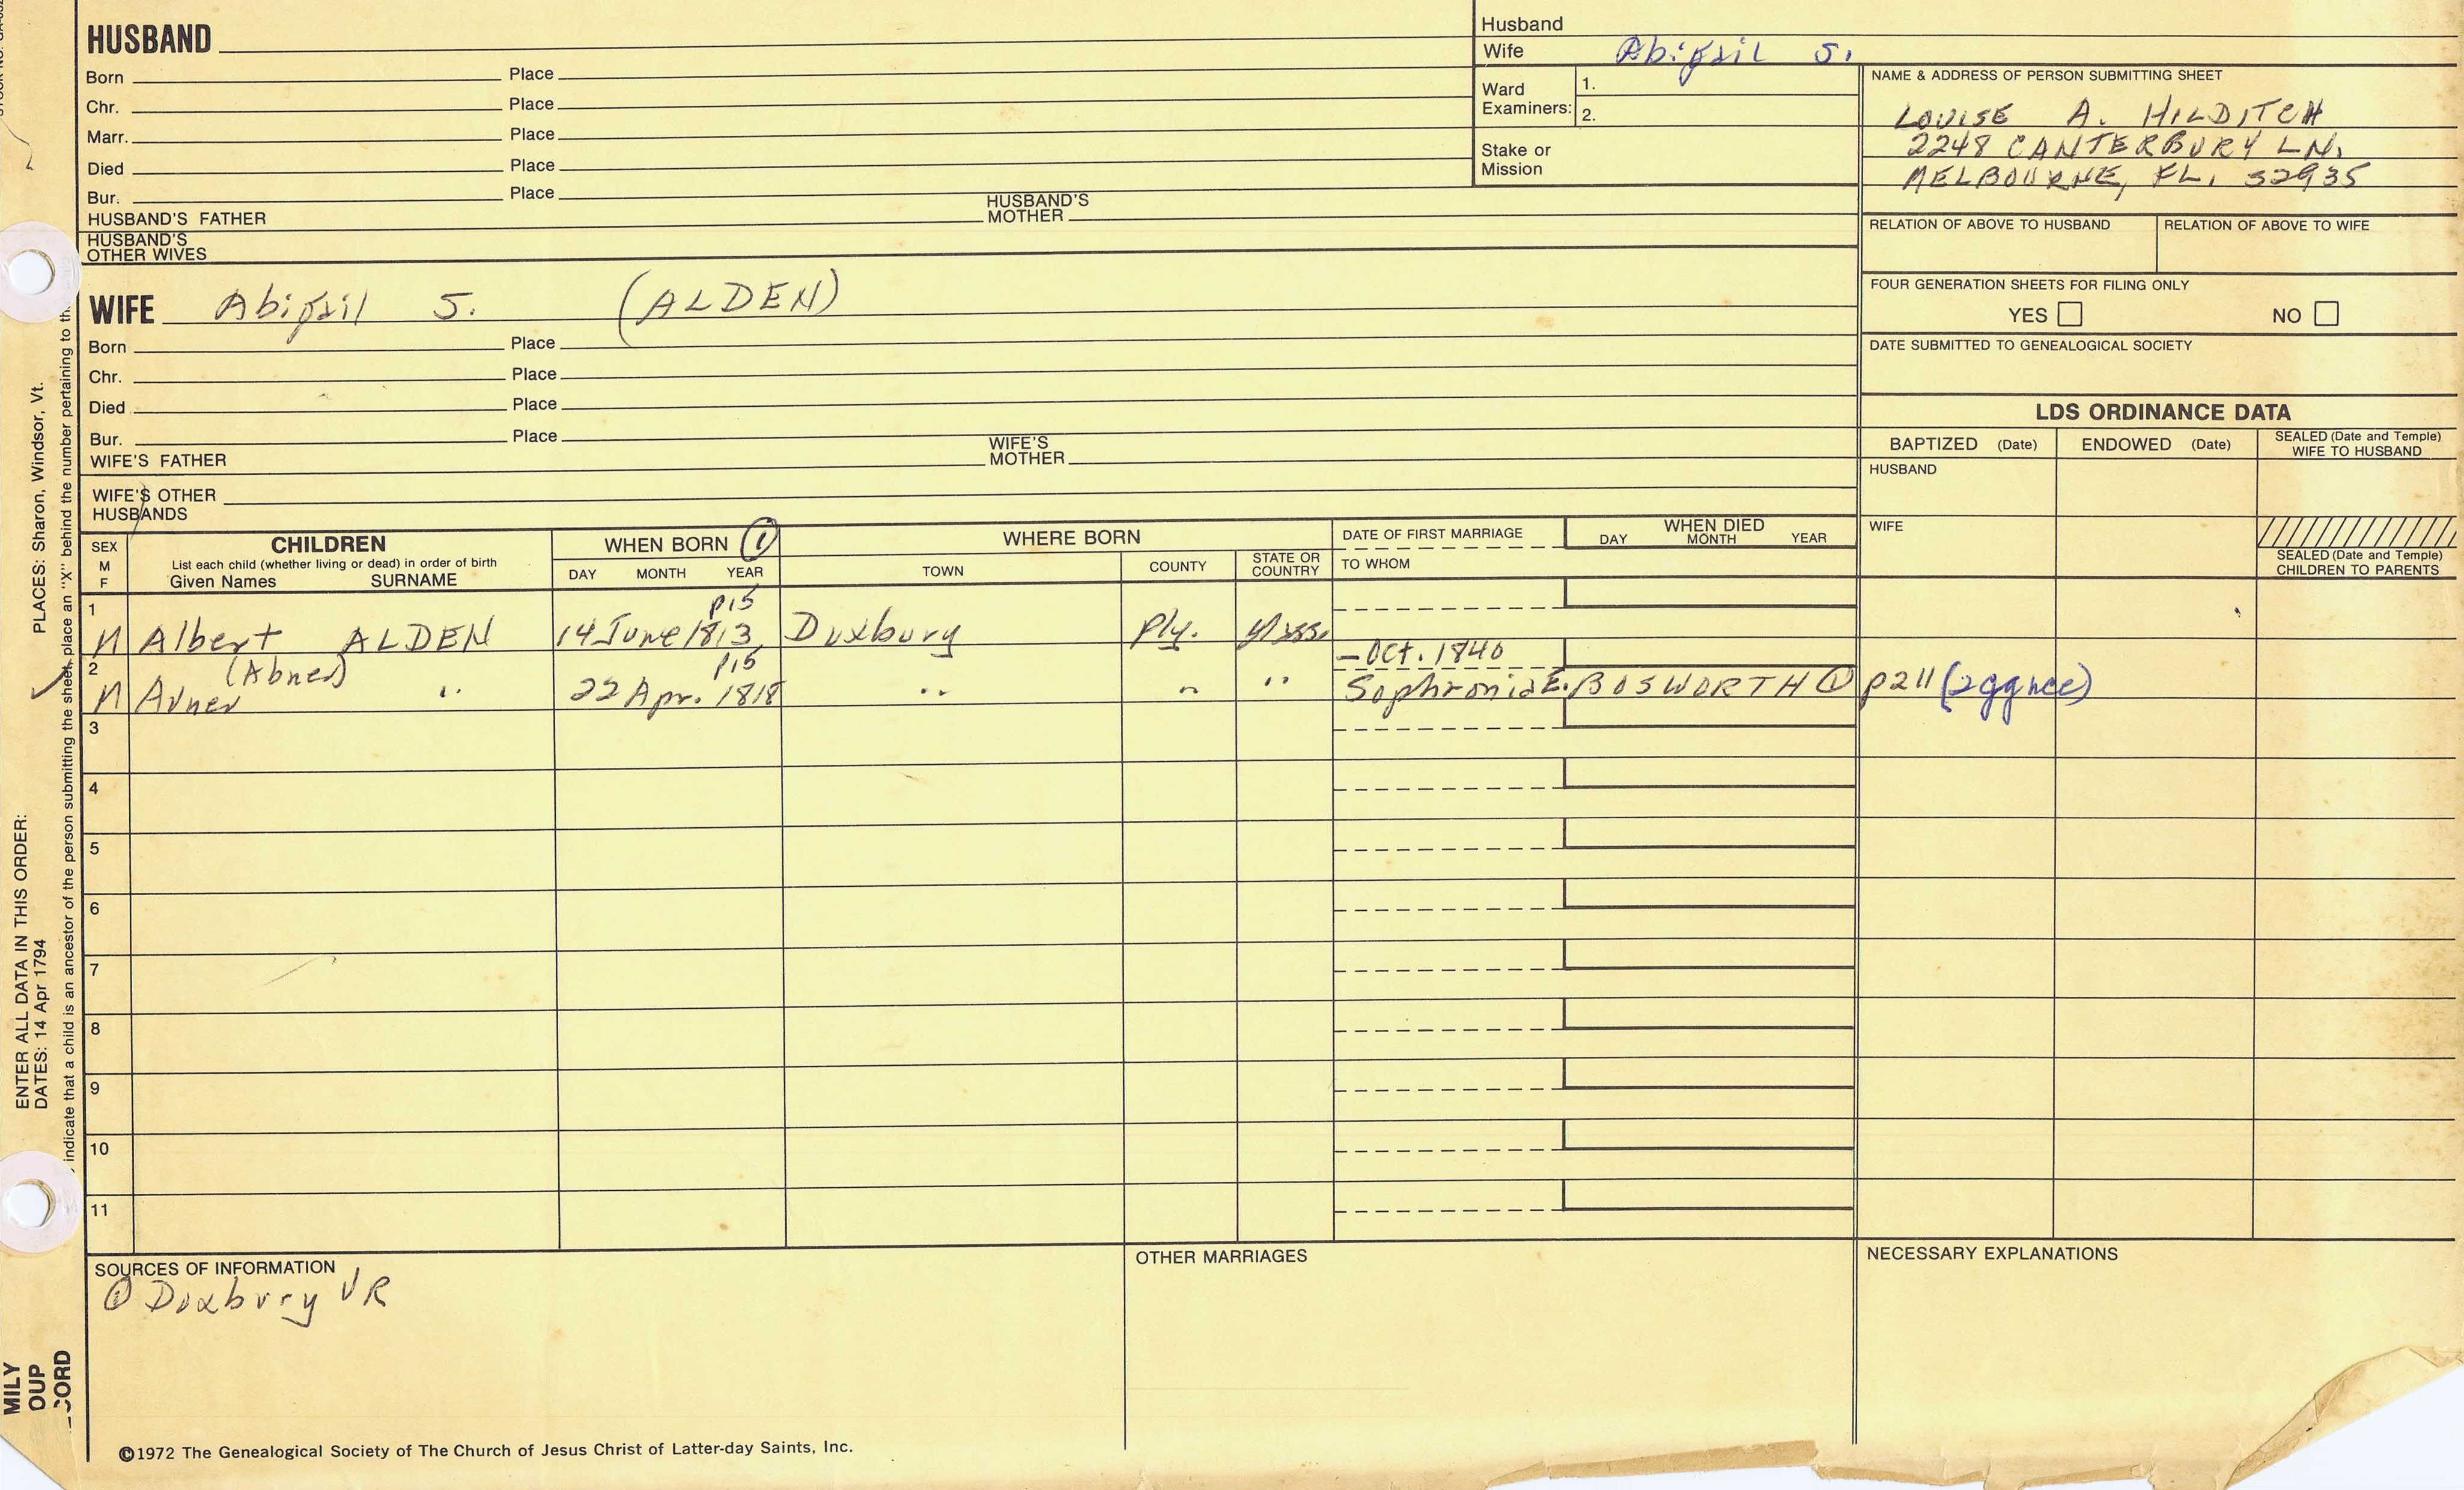 HUSBAND
Born Place
Chr. Place
Marr. Place
Died Place
Bur. Place
HUSBAND'S FATHER HUSBAND'S MOTHER
HUSBAND'S OTHER WIVES
Husband
Wife Abigail S.
Ward Examiners: 1.
2.
Stake or Mission
NAME & ADDRESS OF PERSON SUBMITTING SHEET
LOUISE A. HILDITCH
2248 CANTERBURY LN.
MELBOURNE, FL. 32935
RELATION OF ABOVE TO HUSBAND RELATION OF ABOVE TO WIFE
FOUR GENERATION SHEETS FOR FILING ONLY
YES NO
DATE SUBMITTED TO GENEALOGICAL SOCIETY
WIFE Abigail S. (ALDEN)
Born Place
Chr. Place
Died Place
Bur. Place
WIFE'S FATHER WIFE'S MOTHER
WIFE'S OTHER HUSBANDS
LDS ORDINANCE DATA
BAPTIZED (Date) ENDOWED (Date) SEALED (Date and Temple) WIFE TO HUSBAND
HUSBAND
WIFE
SEALED (Date and Temple) CHILDREN TO PARENTS
SEX M F
CHILDREN
List each child (whether living or dead) in order of birth
Given Names SURNAME
WHEN BORN ①
DAY MONTH YEAR
WHERE BORN
TOWN COUNTY STATE OR COUNTRY
DATE OF FIRST MARRIAGE
TO WHOM
WHEN DIED
DAY MONTH YEAR
1 p15
M Albert ALDEN 14 June 1813 Duxbury Ply. Mass.
2 (Abner) p15 — Oct. 1840
M Avner " 22 Apr. 1818 " " " Sophronia E. BOSWORTH ① p211 (2ggnce)
3
4
5
6
7
8
9
10
11
SOURCES OF INFORMATION
① Duxbury VR
OTHER MARRIAGES
NECESSARY EXPLANATIONS
©1972 The Genealogical Society of The Church of Jesus Christ of Latter-day Saints, Inc.
ENTER ALL DATA IN THIS ORDER:
DATES: 14 Apr 1794 PLACES: Sharon, Windsor, Vt.
indicate that a child is an ancestor of the person submitting the sheet, place an "X" behind the number pertaining to th
MILY
OUP
CORD